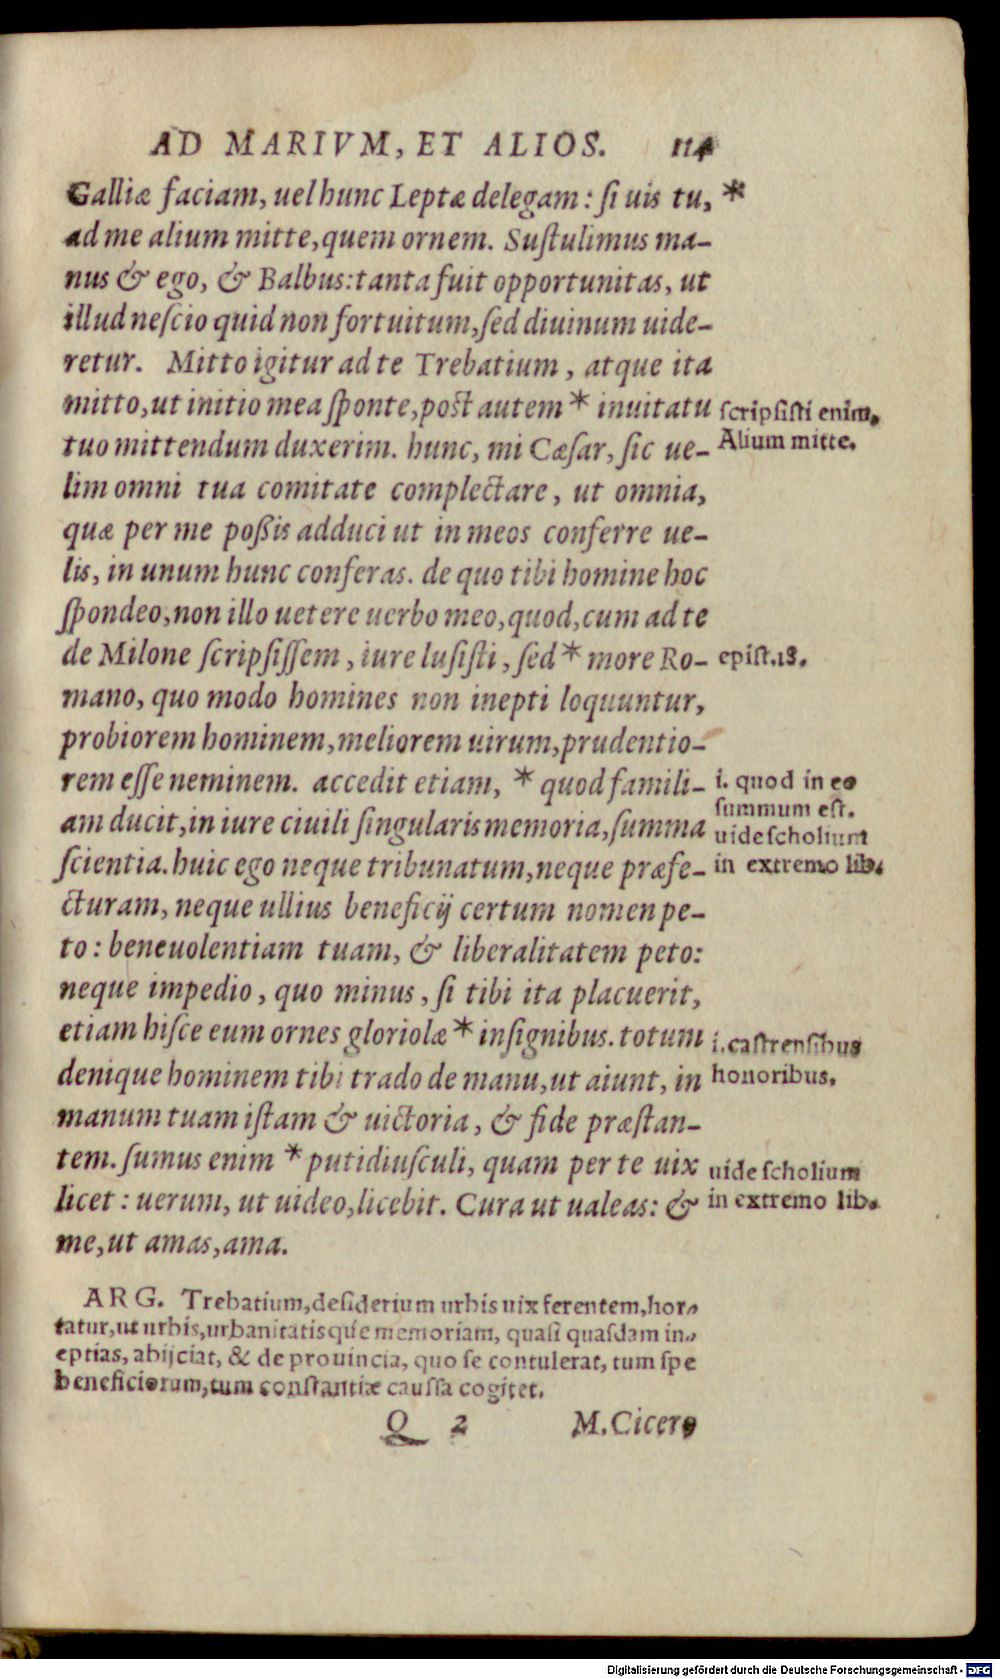 AD MARIVM, ET ALIOS. 114
Galliæ faciam, uel hunc Leptæ delegam: ſi uis tu, *
ad me alium mitte, quem ornem. Suſtulimus ma-
nus & ego, & Balbus: tanta fuit opportunitas, ut
illud neſcio quid non fortuitum, ſed diuinum uide-
retur. Mitto igitur ad te Trebatium, atque ita
mitto, ut initio mea ſponte, poſt autem * inuitatu
ſcripſiſti enim.
Alium mitte.
tuo mittendum duxerim. hunc, mi Cæſar, ſic ue-
lim omni tua comitate complectare, ut omnia,
quæ per me poßis adduci ut in meos conferre ue-
lis, in unum hunc conferas. de quo tibi homine hoc
ſpondeo, non illo uetere uerbo meo, quod, cum ad te
de Milone ſcripſiſſem, iure luſiſti, ſed * more Ro-
epiſt.18.
mano, quo modo homines non inepti loquuntur,
probiorem hominem, meliorem uirum, prudentio-
rem eſſe neminem. accedit etiam, * quod famili-
i. quod in eo
ſummum eſt.
uide ſcholium
in extremo lib.
am ducit, in iure ciuili ſingularis memoria, ſumma
ſcientia. huic ego neque tribunatum, neque præfe-
cturam, neque ullius beneficij certum nomen pe-
to: beneuolentiam tuam, & liberalitatem peto:
neque impedio, quo minus, ſi tibi ita placuerit,
etiam hiſce eum ornes gloriolæ * inſignibus. totum
i. caſtrenſibus
honoribus.
denique hominem tibi trado de manu, ut aiunt, in
manum tuam iſtam & uictoria, & fide præſtan-
tem. ſumus enim * putidiuſculi, quam per te uix
uide ſcholium
in extremo lib.
licet: uerum, ut uideo, licebit. Cura ut ualeas: &
me, ut amas, ama.
ARG. Trebatium, deſiderium urbis uix ferentem, hor-
tatur, ut urbis, urbanitatisque memoriam, quaſi quaſdam in-
eptias, abijciat, & de prouincia, quo ſe contulerat, tum ſpe
beneficiorum, tum conſtantiæ cauſſa cogitet.
Q 2 M. Cicero
Digitalisierung gefördert durch die Deutsche Forschungsgemeinschaft - DFG